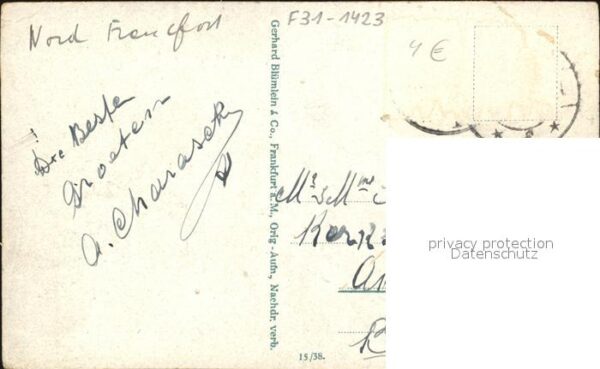 Nord Francfort
F31-1423
4 €
De Beste
Groeten
A.
Gerhard Blümlein & Co., Frankfurt a. M., Orig.-Aufn., Nachdr. verb.
Mr & Mme
15/38.
privacy protection
Datenschutz